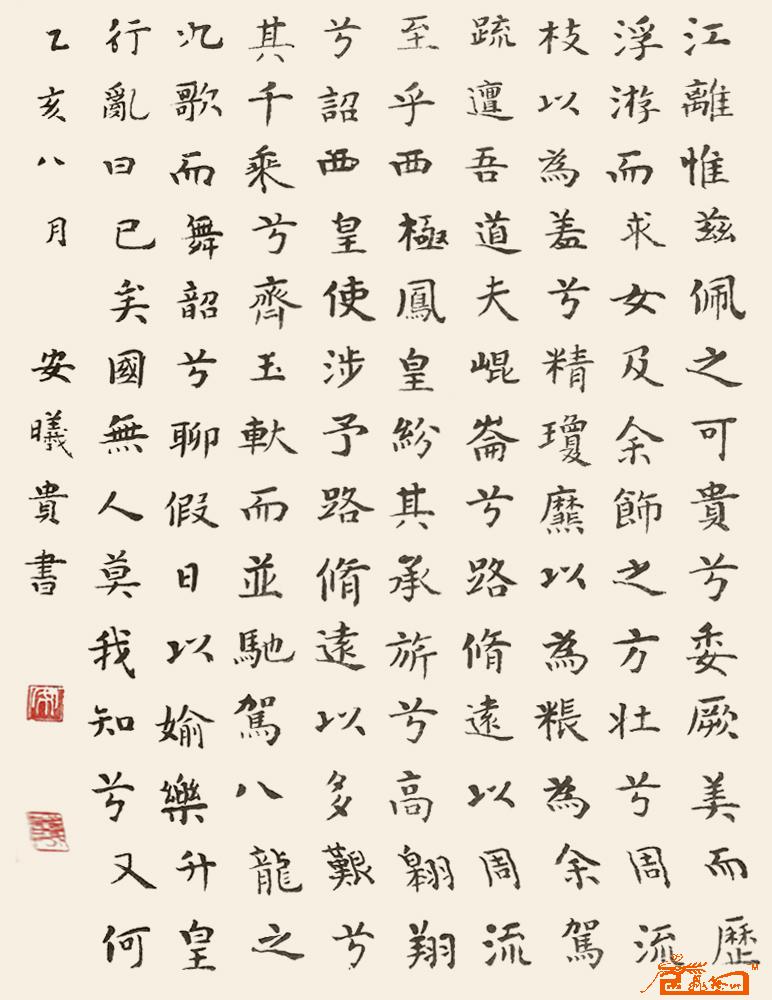 江離惟茲佩之可貴兮委厥美而歷
浮游而求女及余飾之方壯兮周流
枝以為羞兮精瓊爢以為粻為余駕
疏邅吾道夫崐崙兮路脩遠以周流
至乎西極鳳皇紛其承旂兮高翱翔
兮詔西皇使涉予路脩遠以多艱兮
其千乘兮齊玉軑而並馳駕八龍之
九歌而舞韶兮聊假日以媮樂升皇
行亂曰已矣國無人莫我知兮又何
乙亥八月 安曦貴書